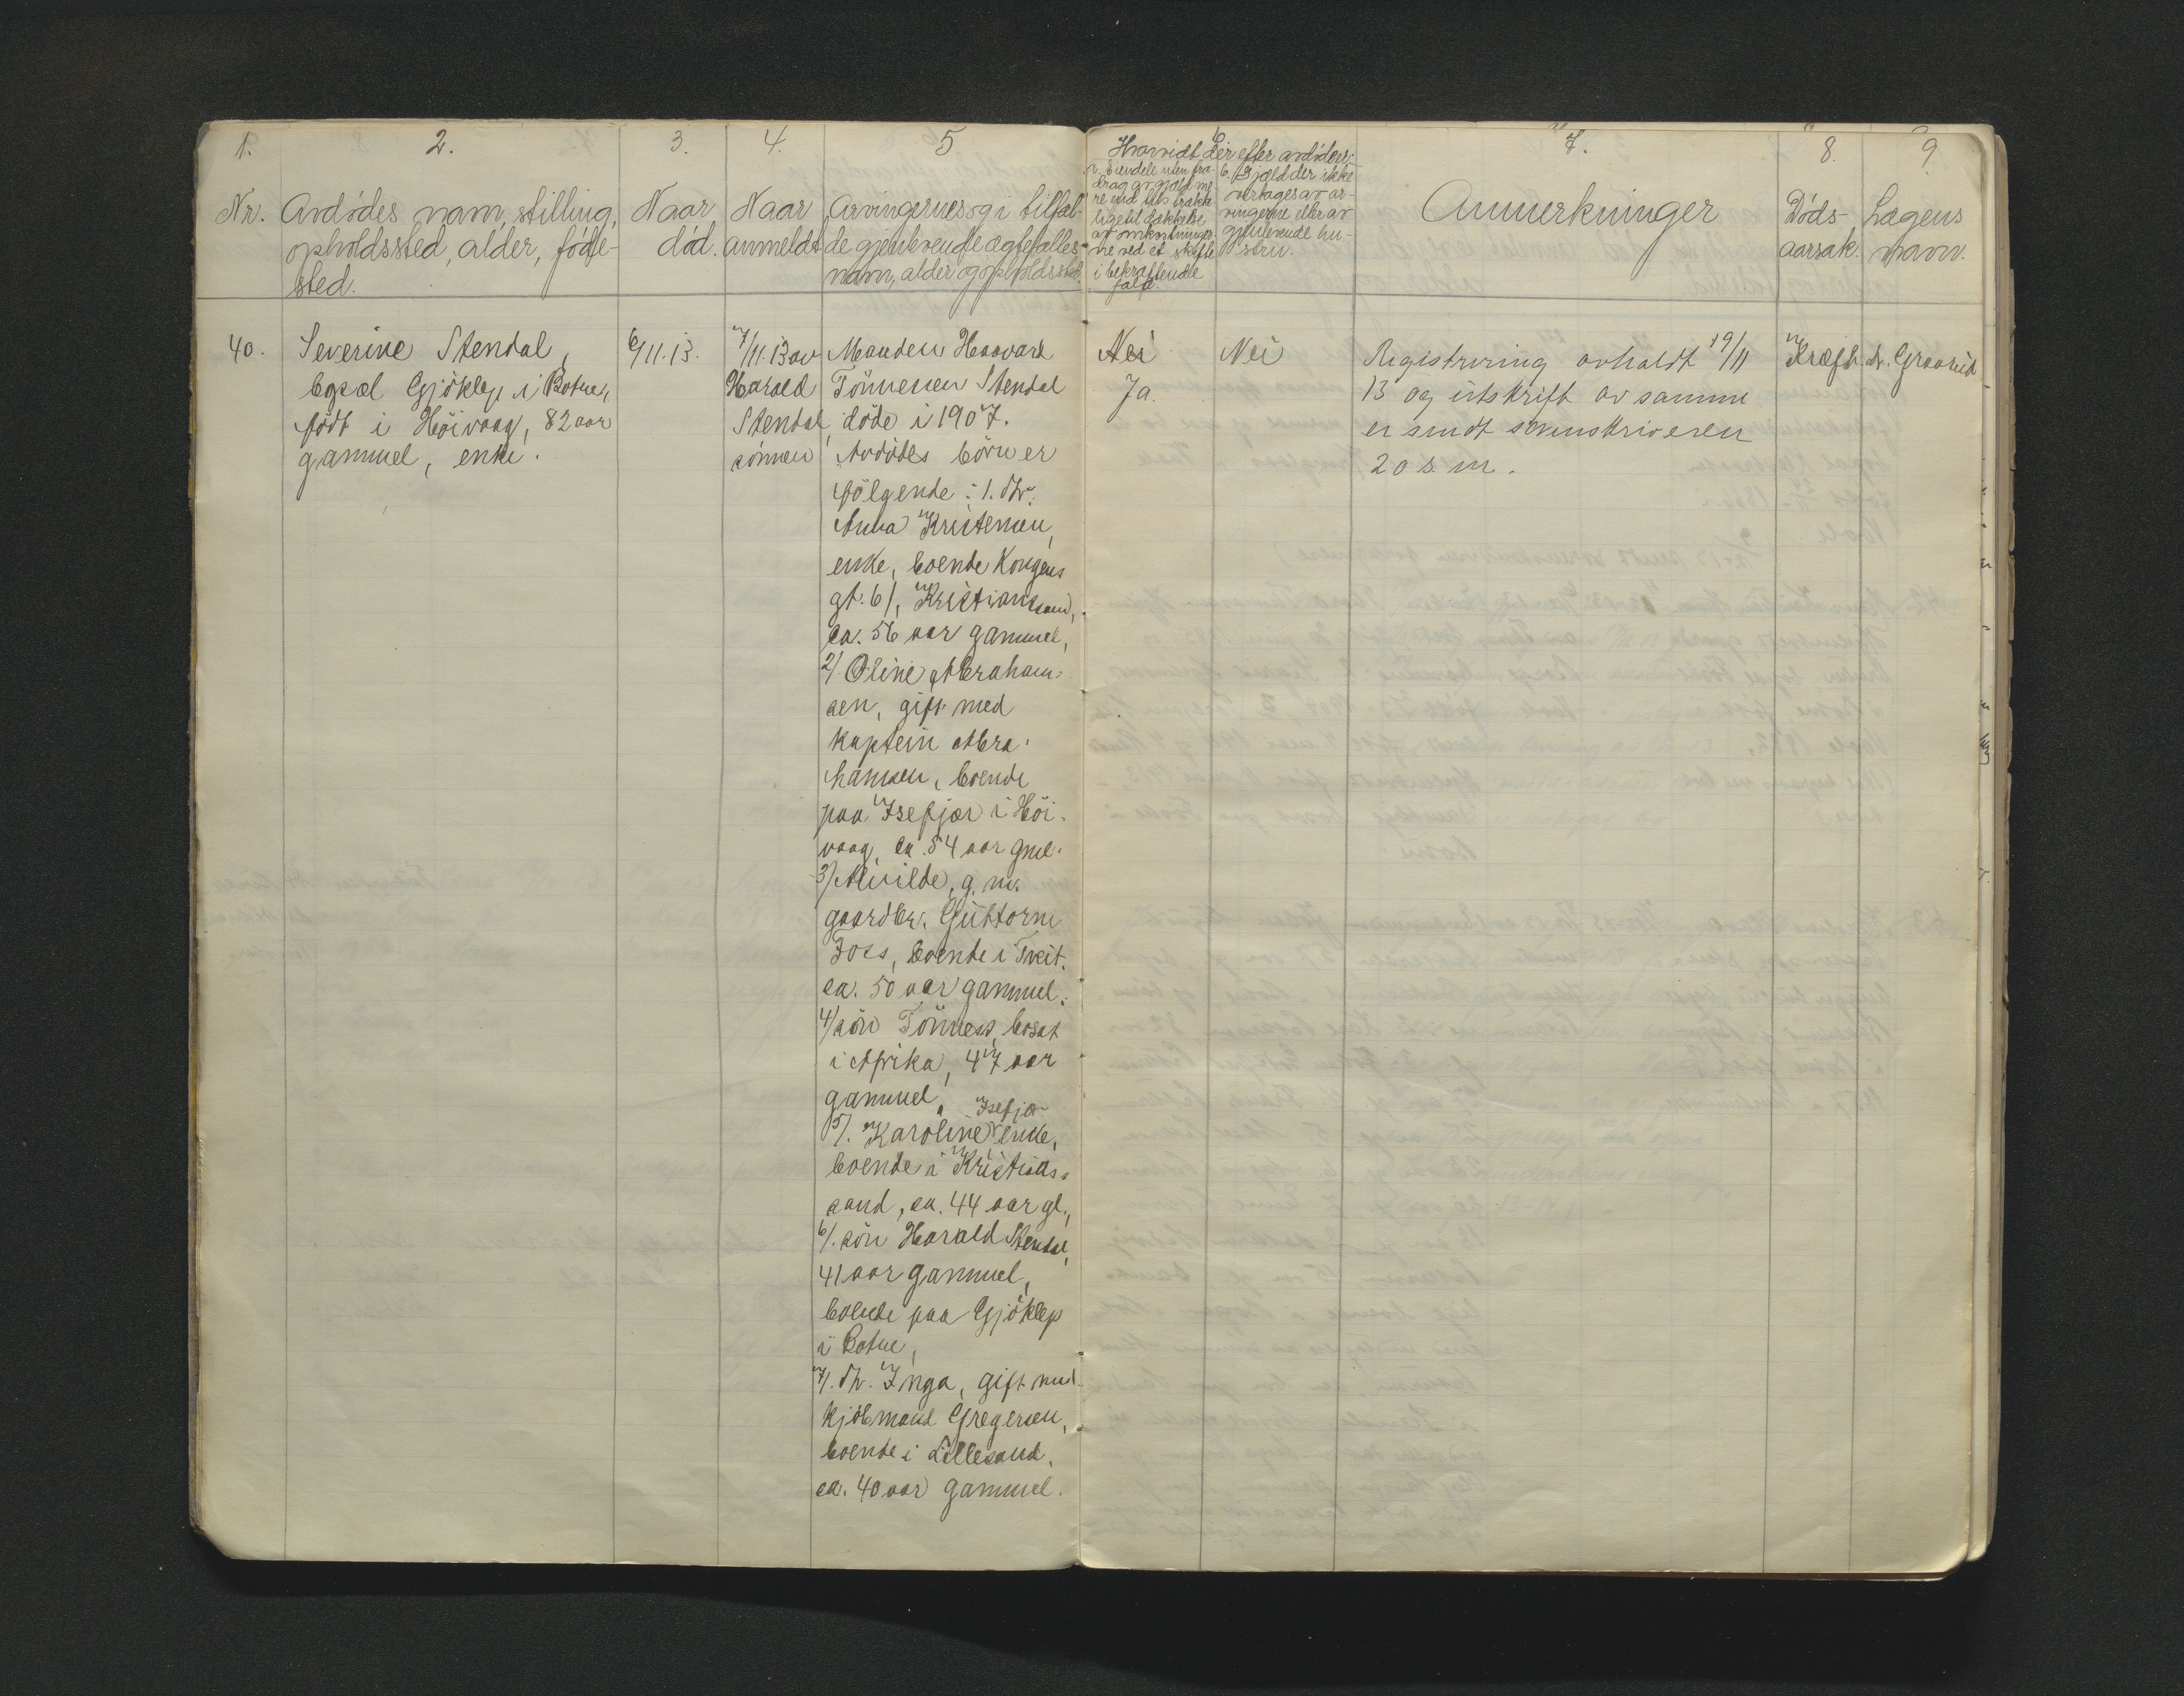 1.
2.
3.
4.
5
6
7.
8.
9
Nr.
Avdödes navn, stilling,
opholdssted, alder, föde-
sted.
Naar
död.
Naar
anmeldt
Arvingernes og i tilfæl-
de gjenlevende ægtefælles
navn, alder og opholdssted.
Hvorvidt der efter avdöde er:
a. Eiendele uten fra-
drag av gjæld me
re end
til dækkelse
av omkostninge-
ne ved et skifte
i bekræftende
fald.
b. Gjæld der ikke
overtages av ar-
vingerne eller av
gjenlevende hu-
stru.
Anmerkninger
Döds-
aarsak.
Lægens
navn.
40.
Severine Stendal,
bopæl Gjöklep i Birkenes,
født i Höivaag, 82 aar
gammel, enke.
6/11.13.
7/11.13 av
Harald
Stendal,
sönnen
Manden Haavard
Tönnesen Stendal
döde i 1907.
Avdödes börn er
fölgende: 1. Dtr.
Anna Kristensen,
enke, boende Kongens
gt. 61, Kristianssand,
ca. 56 aar gammel,
2/ Oline Abraham-
sen, gift med
kaptein Abra-
hamsen, boende
paa Isefjær i Höi-
vaag, ca. 54 aar gml.
3/ Alvilde, g. m.
gaardbr. Guttorm
Foss, boende i Tveit.
ca. 50 aar gammel.
4/ sön Tönnes, bosat
i Afrika, 47 aar
gammel,
5/. Karoline Isefjær enke,
boende i Kristians-
sand, ca. 44 aar gl.,
6/. sön Harald Stendal,
41 aar gammel,
boende paa Gjöklep
i
7/. Dtr. Inga, gift med
kjöbmand Gregersen,
boende i Lillesand,
ca. 40 aar gammel.
Nei
Ja.
Nei
Registrering avholdt 19/11
13 og utskrift av samme
er sendt sorenskriveren
20 s. m.
Kræft
dr. Graarud